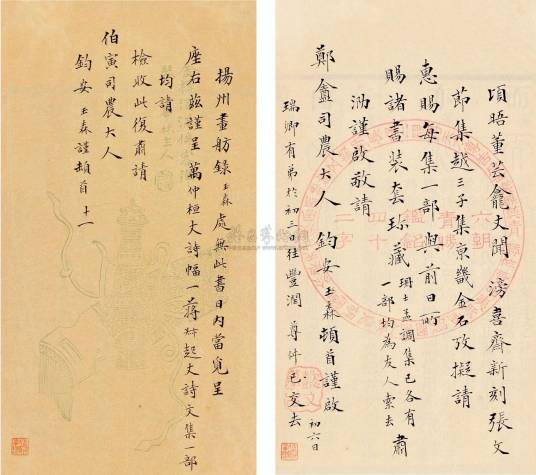 頃晤董芸龕丈聞滂喜齋新刻張文
節集越三子集京畿金石攷擬請
惠賜每集一部與前日所
賜諸書裝套珍藏
珊士孟調集已各有
一部均為友人索去
肅
泐謹啟敬請
鄭盦司農大人
鈞安玉森頓首謹啟
初六日
瑞卿有弟於初三日往豐潤尊件已交去
揚州畫舫錄玉森處無此書日內當覓呈
座右茲謹呈萬仲桓丈詩幅一蔣叔起丈詩文集一部
均請
檢收此復肅請
伯寅司農大人
鈞安玉森謹頓首十一